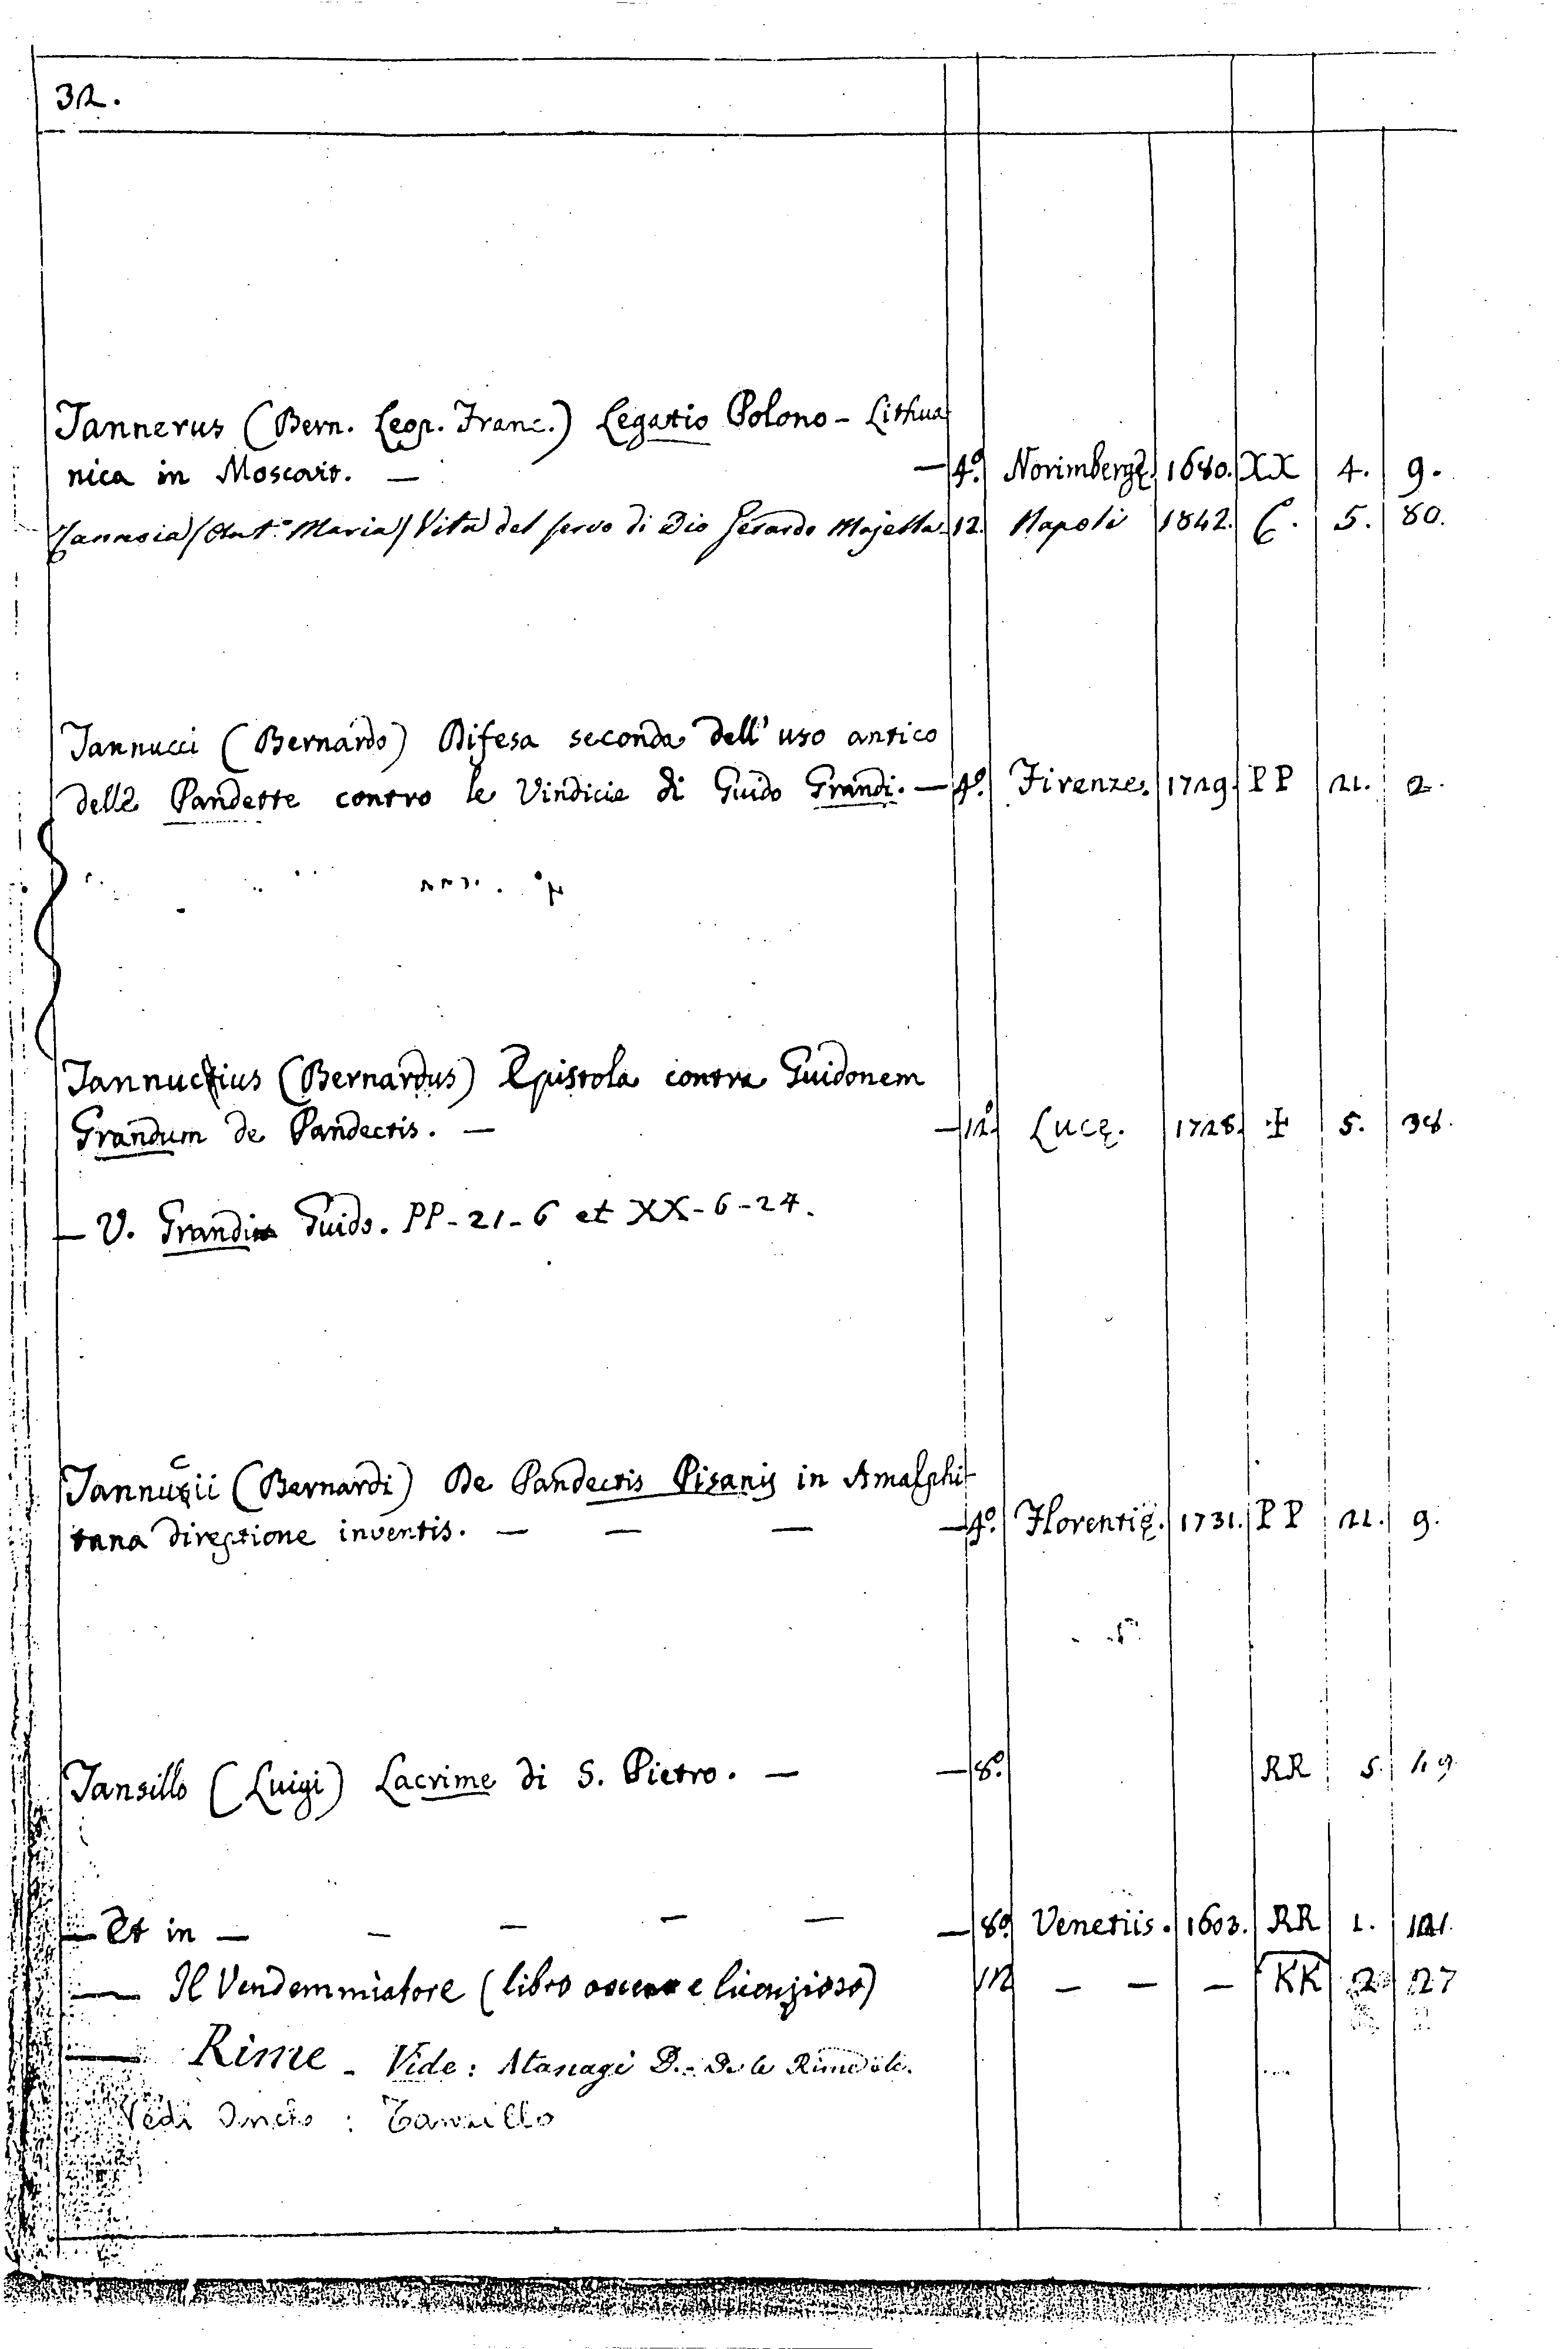 32.
Tannerus (Bern. Leop. Franc.) Legatio Polono - Lithua
nica in Moscavit. — — 4º Norimbergę. 1680. XX 4. 9.
Tannoia (Ant.º Maria) Vita del servo di Dio Gerardo Majella. 12. Napoli 1842. C. 5. 80.
Tannucci (Bernardo) Difesa seconda dell' uso antico
delle Pandette contro le Vindicie di Guido Grandi. — 4º. Firenze. 1729. PP 21. 2.
Tannuccius (Bernardus) Epistola contra Guidonem
Grandum de Pandectis. — — 12º Lucę. 1728. 5. 38.
— V. Grandi Guido. PP - 21 - 6 et XX - 6 - 24.
Tannucii (Bernardi) De Pandectis Pisanis in Amalphi-
tana direptione inventis. — — — — 4º. Florentię. 1731. PP 21. 9.
Tansillo (Luigi) Lacrime di S. Pietro. — — 8º. RR 5. 49
— Et in — — — — — — 8º Venetiis. 1603. RR 1. 121.
— Il Vendemmiatore (libro osceno e licenzioso) 12 — — — KK 2 27
— Rime - Vide: Atanagi D. - De le Rime
Vedi : Tansillo